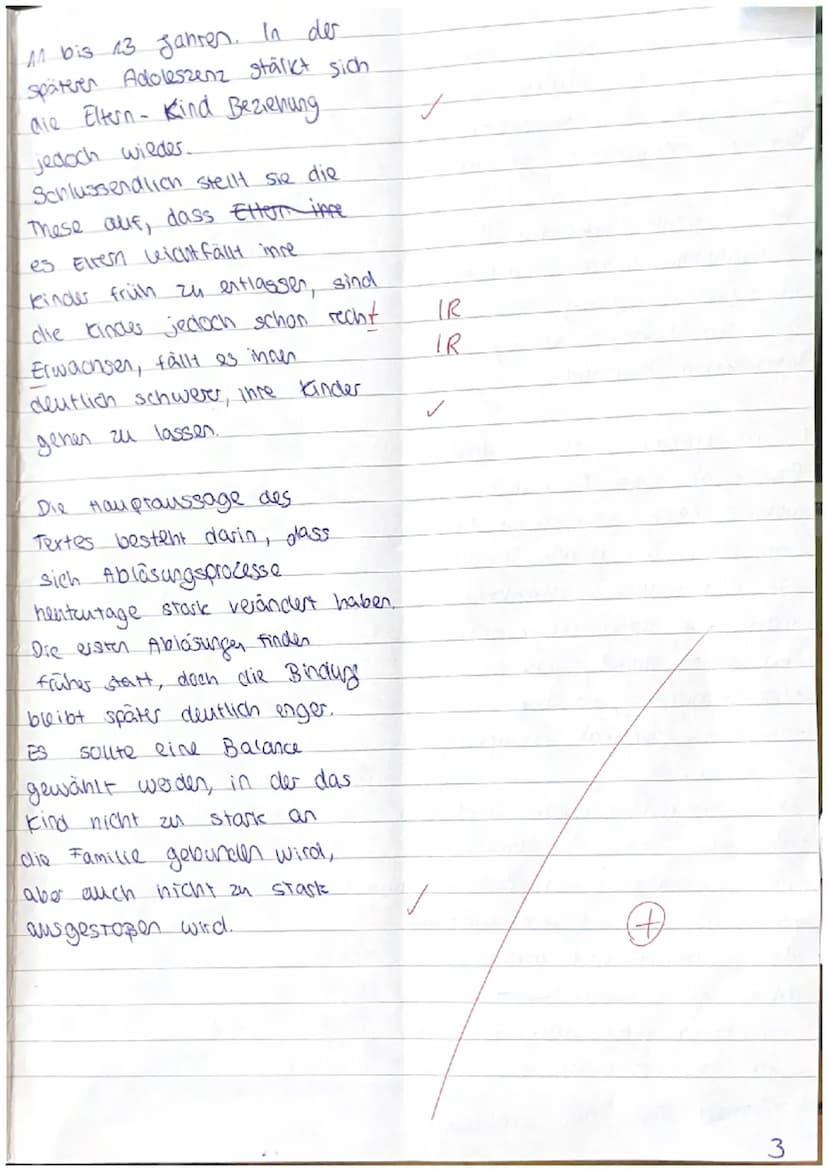 11 bis 13 Jahren. In der
späteren Adoleszenz stärkt sich
die Eltern-Kind Beziehung
jedoch wieder.
Schlussendlich stellt sie die
These auf, dass Eltern ihre
es Eltern leicht fällt ihre
Kinder früh zu entlassen, sind
die Kinder jedoch schon recht IR
Erwachsen, fällt es ihnen IR
deutlich schwerer, ihre Kinder
gehen zu lassen.
Die Hauptaussage des
Textes besteht darin, dass
sich Ablösungsprozesse
heutzutage stark verändert haben.
Die ersten Ablösungen finden
früher statt, doch die Bindung
bleibt später deutlich enger.
Es sollte eine Balance
gewählt werden, in der das
Kind nicht zu stark an
die Familie gebunden wird,
aber auch nicht zu stark
ausgestoßen wird.
+
3